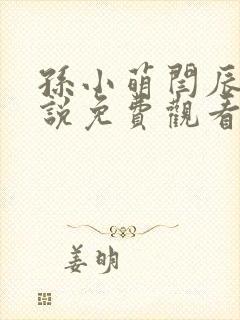 孫小萌閆辰
說免費觀看
姜明